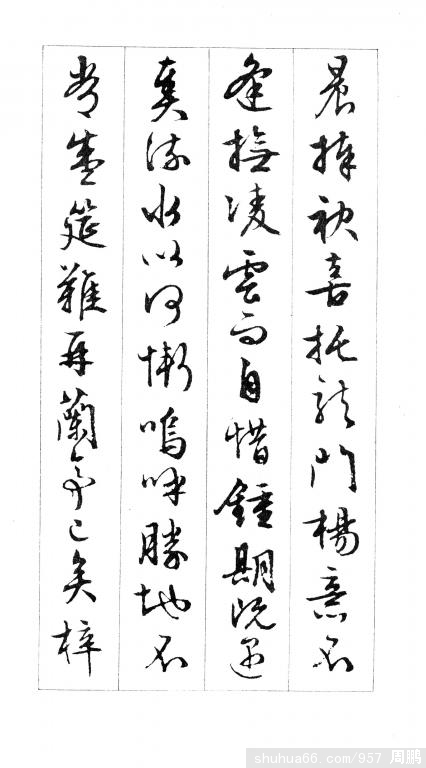 晨捧袂喜托龍門楊意不
逢撫凌雲而自惜鍾期既遇
奏流水以何慚嗚呼勝地不
常盛筵難再蘭亭已矣梓
shuhua66.com/957 周鹏